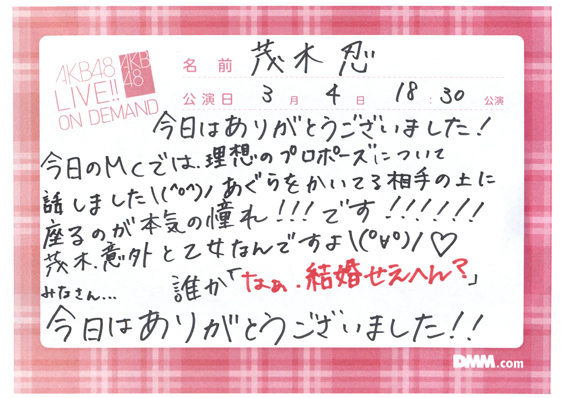 AKB48
LIVE!!
ON DEMAND
AKB
48
名前 茂木忍
公演日 3月4日 18:30公演
今日はありがとうございました!
今日のMCでは、理想のプロポーズについて
話しました\(^o^)/ あぐらをかいてる相手の上に
座るのが本気の憧れ!!!です!!!!!!
茂木、意外と乙女なんですよ\(°∀°)/♡
みなさん... 誰か「なぁ、結婚せえへん?」
今日はありがとうございました!!
DMM.com